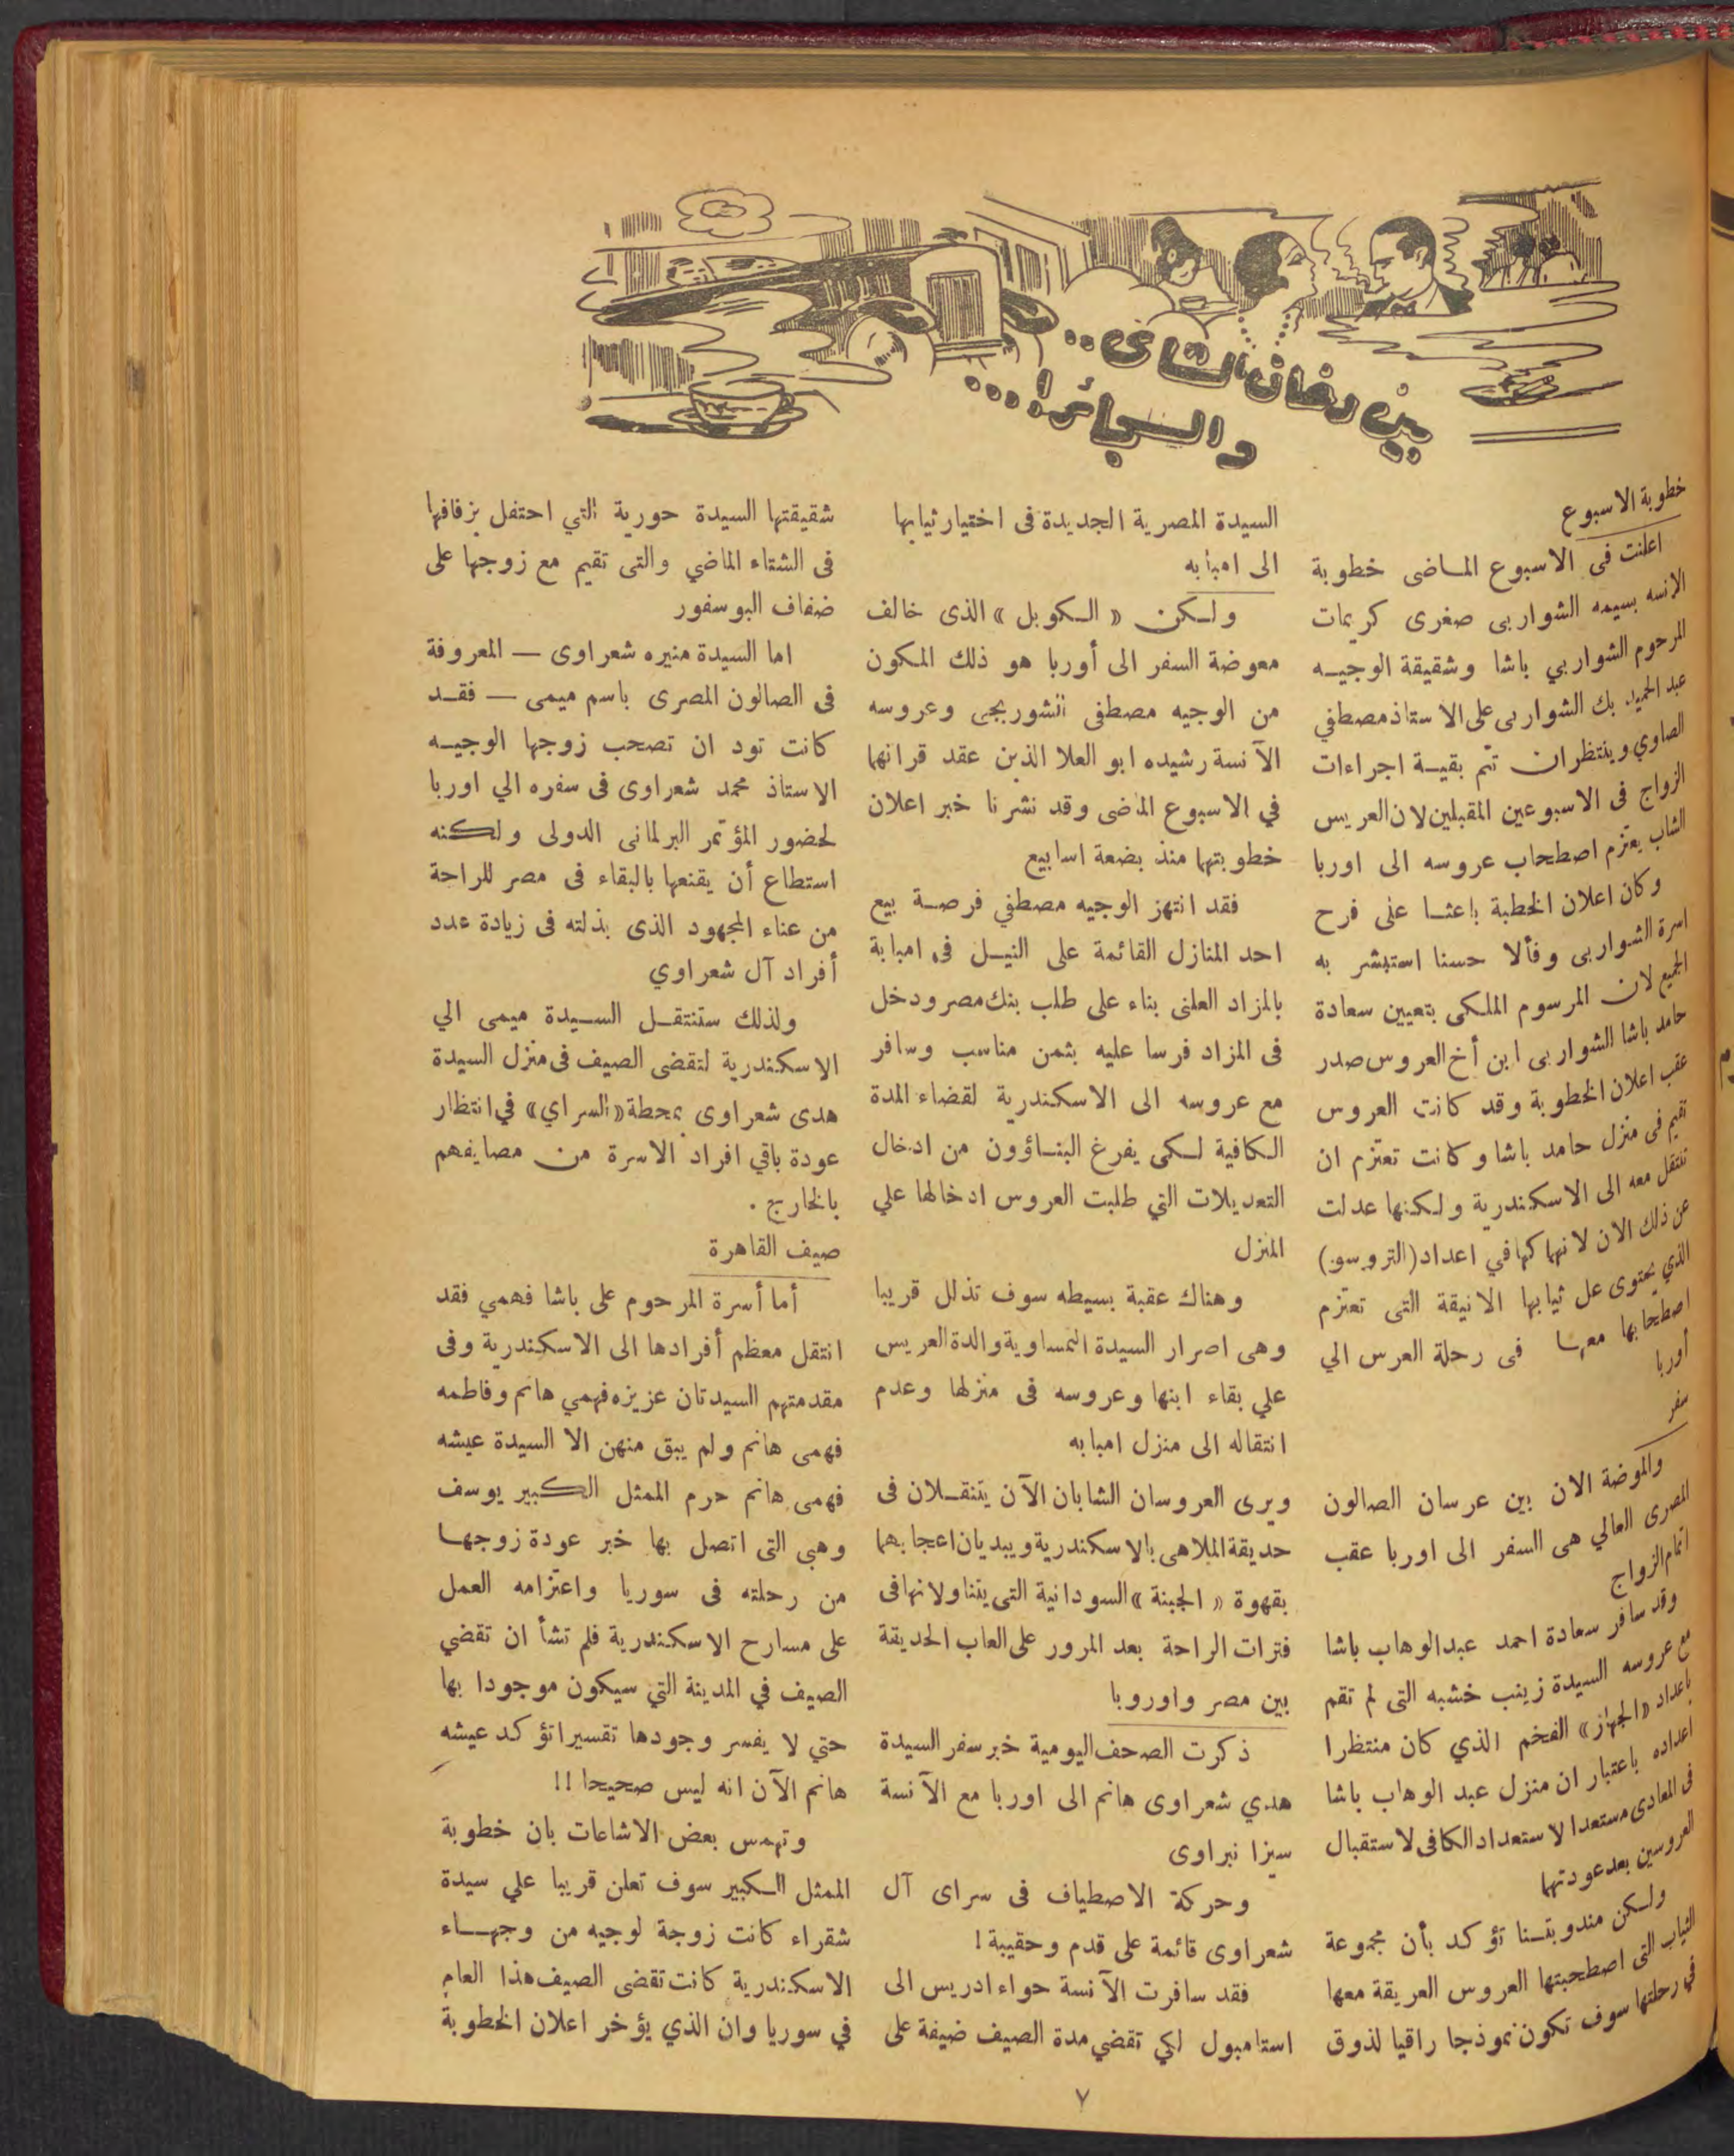 بين دخان الشاى..
والسجائر!...
خطوبة الاسبوع
اعلنت في الاسبوع المـاضى خطوبة
الانسه بسيمه الشواربى صغرى كريمات
المرحوم الشواربي باشا وشقيقة الوجيـه
عبد الحميد بك الشواربى على الاستاذ مصطفي
الصاوي وينتظران تتم بقيـة اجراءات
الزواج فى الاسبوعين المقبلين لان العريس
الشاب يعتزم اصطحاب عروسه الى اوربا
وكان اعلان الخطبة باعثـا على فرح
اسرة الشواربى وفألا حسنا استبشر به
الجميع لان المرسوم الملكى بتعيين سعادة
حامد باشا الشواربى ابن أخ العروس صدر
عقب اعلان الخطوبة وقد كانت العروس
تقيم فى منزل حامد باشا وكانت تعتزم ان
تنتقل معه الى الاسكندرية ولكنها عدلت
عن ذلك الان لانهماكها في اعداد (التروسو)
الذي يحتوى عل ثيابها الانيقة التى تعتزم
اصطحابها معهـا فى رحلة العرس الي
أوربا
سفر
والموضة الان بين عرسان الصالون
المصرى العالي هى السفر الى اوربا عقب
اتمام الزواج
وقد سافر سعادة احمد عبدالوهاب باشا
مع عروسه السيدة زينب خشبه التى لم تقم
باعداد «الجهاز» الفخم الذي كان منتظرا
اعداده باعتبار ان منزل عبد الوهاب باشا
فى المعادى مستعدا لاستعداد الكافى لاستقبال
العروسين بعد عودتهما
ولـكن مندوبتـنا تؤكد بأن مجموعة
الثياب التى اصطحبتها العروس العريقة معها
في رحلتها سوف تكون نموذجا راقيا لذوق
السيدة المصرية الجديدة فى اختيار ثيابها
الى امبابه
ولـكن «الـكوبل» الذى خالف
معوضة السفر الى أوربا هو ذلك المكون
من الوجيه مصطفى الشوربجى وعروسه
الآنسة رشيده ابو العلا الذين عقد قرانهما
في الاسبوع الماضى وقد نشرنا خبر اعلان
خطوبتهما منذ بضعة اسابيع
فقد انتهز الوجيه مصطفي فرصـة بيع
احد المنازل القائمة على النيـل فى امبابة
بالمزاد العلنى بناء على طلب بنك مصر ودخل
فى المزاد فرسا عليه بثمن مناسب وسافر
مع عروسه الى الاسكندرية لقضاء المدة
الكافية لـكى يفرغ البنـاؤون من ادخال
التعديلات التي طلبت العروس ادخالها علي
المنزل
وهناك عقبة بسيطه سوف تذلل قريبا
وهى اصرار السيدة النمساوية والدة العريس
علي بقاء ابنها وعروسه فى منزلها وعدم
انتقاله الى منزل امبابه
ويرى العروسان الشابان الآن يتنقـلان فى
حديقة الملاهى بالاسكندرية ويبديان اعجابهما
بقهوة «الجبنة» السودانية التى يتناولانها فى
فترات الراحة بعد المرور على العاب الحديقة
بين مصر واوروبا
ذكرت الصحف اليومية خبر سفر السيدة
هدي شعراوى هانم الى اوربا مع الآنسة
سيزا نبراوى
وحركة الاصطياف فى سراى آل
شعراوى قائمة على قدم وحقيبة!
فقد سافرت الآنسة حواء ادريس الى
استامبول لكي تقضي مدة الصيف ضيفة على
شقيقتها السيدة حورية التي احتفل بزفافها
فى الشتاء الماضي والتى تقيم مع زوجها على
ضفاف البوسفور
اما السيدة منيره شعراوى — المعروفة
فى الصالون المصرى باسم ميمى — فقـد
كانت تود ان تصحب زوجها الوجيـه
الاستاذ محمد شعراوى فى سفره الي اوربا
لحضور المؤتمر البرلمانى الدولى ولكنه
استطاع أن يقنعها بالبقاء فى مصر للراحة
من عناء المجهود الذى بذلته فى زيادة عدد
أفراد آل شعراوي
ولذلك ستنتقـل السـيدة ميمى الي
الاسكندرية لتقضى الصيف فى منزل السيدة
هدى شعراوى بمحطة «السراي» في انتظار
عودة باقي افراد الاسرة من مصايفهم
بالخارج .
صيف القاهرة
أما أسرة المرحوم على باشا فهمي فقد
انتقل معظم أفرادها الى الاسكندرية وفى
مقدمتهم السيدتان عزيزه فهمي هانم وفاطمه
فهمى هانم ولم يبق منهن الا السيدة عيشه
فهمى هانم حرم الممثل الكبير يوسف
وهبي التى اتصل بها خبر عودة زوجهـا
من رحلته فى سوريا واعتزامه العمل
على مسارح الاسكندرية فلم تشأ ان تقضي
الصيف في المدينة التي سيكون موجودا بها
حتي لا يفسر وجودها تفسيرا تؤكد عيشه
هانم الآن انه ليس صحيحا !!
وتهمس بعض الاشاعات بان خطوبة
الممثل الـكبير سوف تعلن قريبا علي سيدة
شقراء كانت زوجة لوجيه من وجهـاء
الاسكندرية كانت تقضى الصيف هذا العام
في سوريا وان الذي يؤخر اعلان الخطوبة
٧